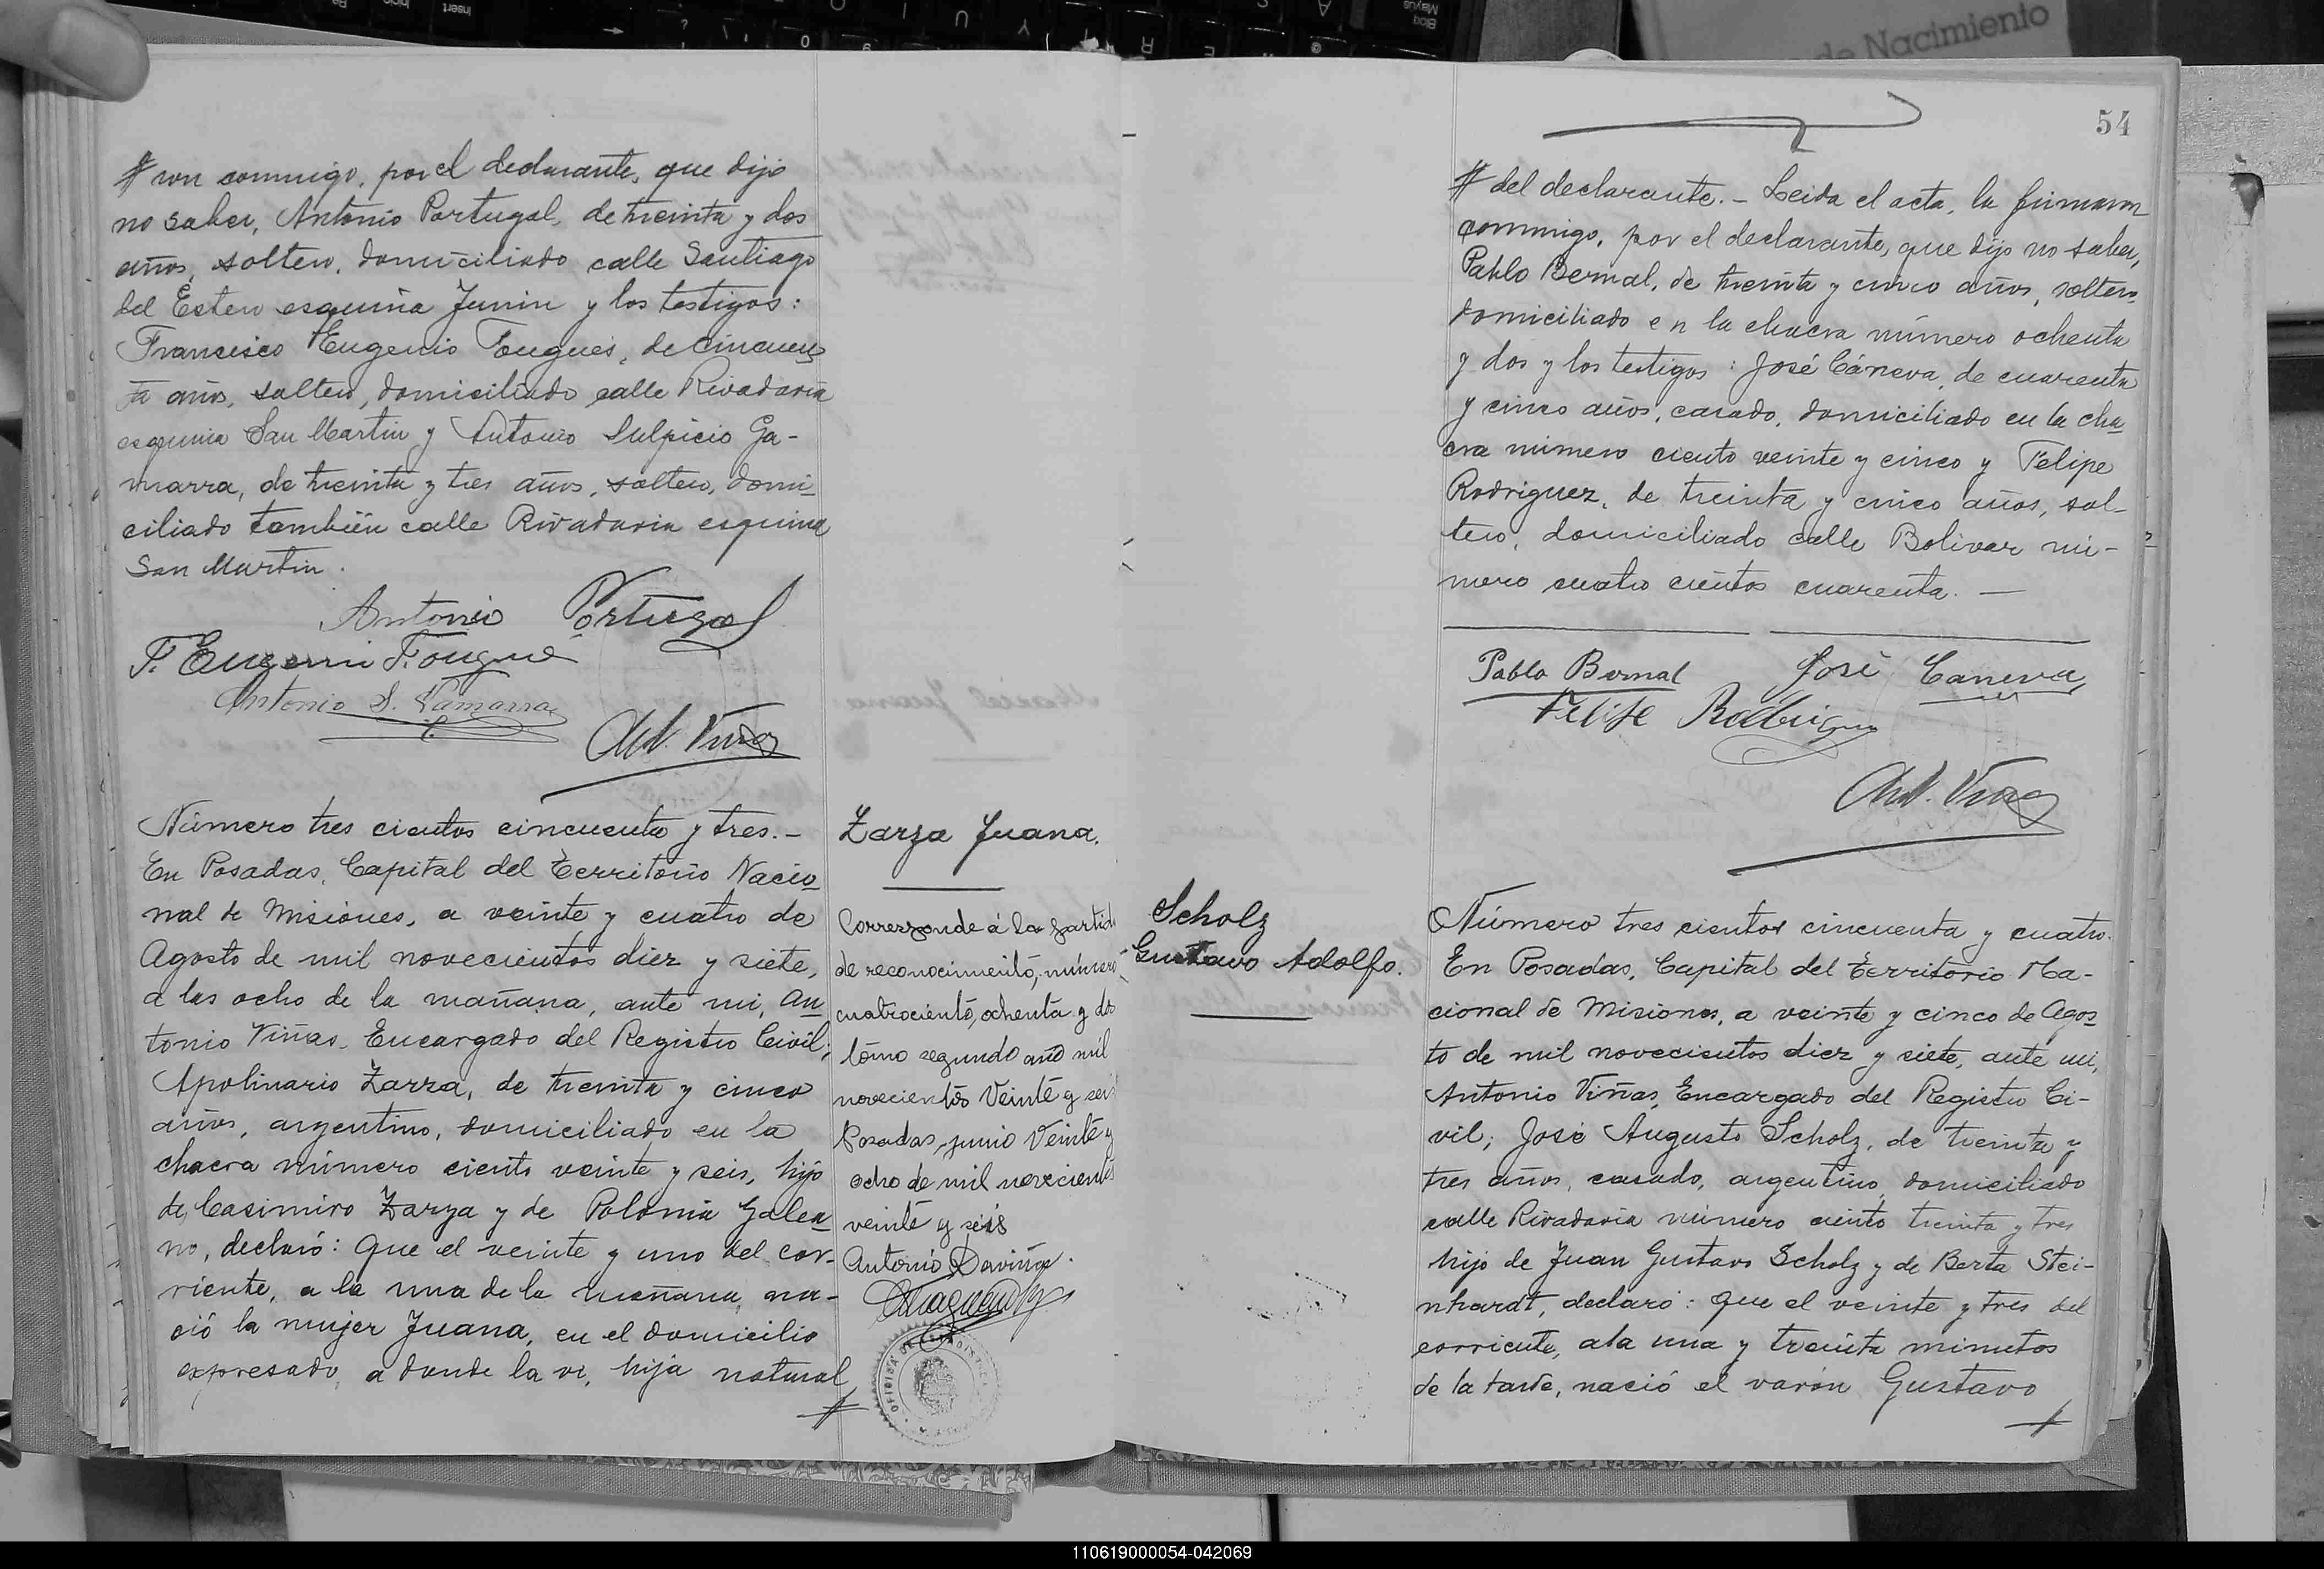 de Nacimiento
ron conmigo, por el declarante, que dijo
no saber, Antonio Portugal, de treinta y dos
años, soltero, domiciliado calle Santiago
del Estero esquina Junin y los testigos:
Francisco Eugenio Fougues, de cincuen
ta años, soltero, domiciliado calle Rivadavia
esquina San Martin y Antonio Sulpicio Ga-
marra, de treinta y tres años, soltero, domi-
ciliado también calle Rivadavia esquina
San Martin.
Antonio Portugal
F. Eugenio Fougue
Antonio S. Gamarra
Ant. Viñas
Número tres cientos cincuenta y tres.-
En Posadas, Capital del Territorio Nacio
nal de Misiones, a veinte y cuatro de
Agosto de mil novecientos diez y siete,
a las ocho de la mañana, ante mi, An
tonio Viñas, Encargado del Registro Civil;
Apolinario Zarza, de treinta y cinco
años, argentino, domiciliado en la
chacra número ciento veinte y seis, hijo
de Casimiro Zarza y de Polonia Galea
no, declaró: Que el veinte y uno del cor-
riente, a la una de la mañana, na-
ció la mujer Juana, en el domicilio
expresado, a donde la vi, hija natural
Zarza Juana.
Corresponde á la partid
de reconocimiento, número
cuatrociento, ochenta y dos
tomo segundo año mil
novecientos Veinte y seis
Posadas, junio Veinte y
ocho de mil novecientos
veinte y seis
Antonio
54
del declarante.- Leida el acta, la firmaron
conmigo, por el declarante, que dijo no saber,
Pablo Bernal, de treinta y cinco años, soltero,
domiciliado en la chacra número ochenta
y dos y los testigos: José Cáneva, de cuarenta
y cinco años, casado, domiciliado en la cha
cra número ciento veinte y cinco y Felipe
Rodriguez, de treinta y cinco años, sol-
tero, domiciliado calle Bolivar nú-
mero cuatro cientos cuarenta.-
Pablo Bernal José Caneva
Felipe Rodriguez
Ant. Viñas
Scholz
Gustavo Adolfo.
Número tres cientos cincuenta y cuatro.
En Posadas, Capital del Territorio Na-
cional de Misiones, a veinte y cinco de Agos
to de mil novecientos diez y siete, ante mi,
Antonio Viñas, Encargado del Registro Ci-
vil; José Augusto Scholz, de treinta y
tres años, casado, argentino, domiciliado
calle Rivadavia número ciento treinta y tres
hijo de Juan Gustavo Scholz y de Berta Stei-
nhardt, declaró: Que el veinte y tres del
corriente, a la una y treinta minutos
de la tarde, nació el varón Gustavo
110619000054-042069